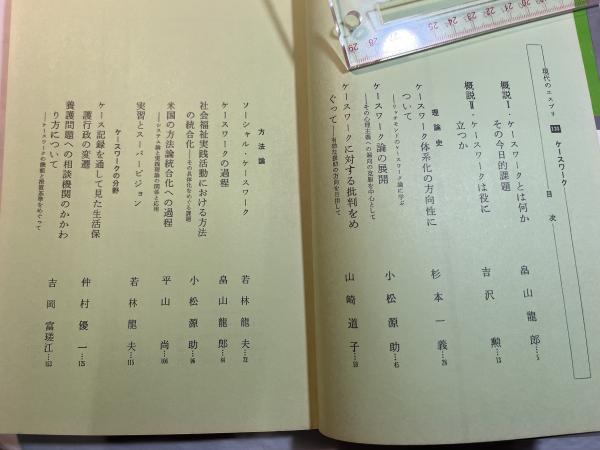 現代のエスプリ 138 ケースワーク
目次
概説Ⅰ・ケースワークとは何か
その今日的課題 畠山龍郎…5
概説Ⅱ・ケースワークは役に
立つか 吉沢 勲…13
理論史
ケースワーク体系化の方向性に
ついて 杉本一義…26
―リッチモンドのケースワーク論に学ぶ
ケースワーク論の展開 小松源助…45
―その心理主義への傾向の克服を中心として
ケースワークに対する批判をめ
ぐって 山崎道子…59
―有効な援助の方向を目指して
方法論
ソーシャル・ケースワーク 若林龍夫…72
ケースワークの過程 畠山龍郎…84
社会福祉実践活動における方法
の統合化―その具体化をめぐる課題 小松源助…96
米国の方法論統合化への過程 平山 尚…106
―システム論と実践理論の関係と応用
実習とスーパービジョン 若林龍夫…115
ケースワークの分野
ケース記録を通して見た生活保
護行政の変遷 仲村優一…125
養護問題への相談機関のかかわ
り方について 吉岡富瑳江…153
―ケースワークの機能と措置基準をめぐって